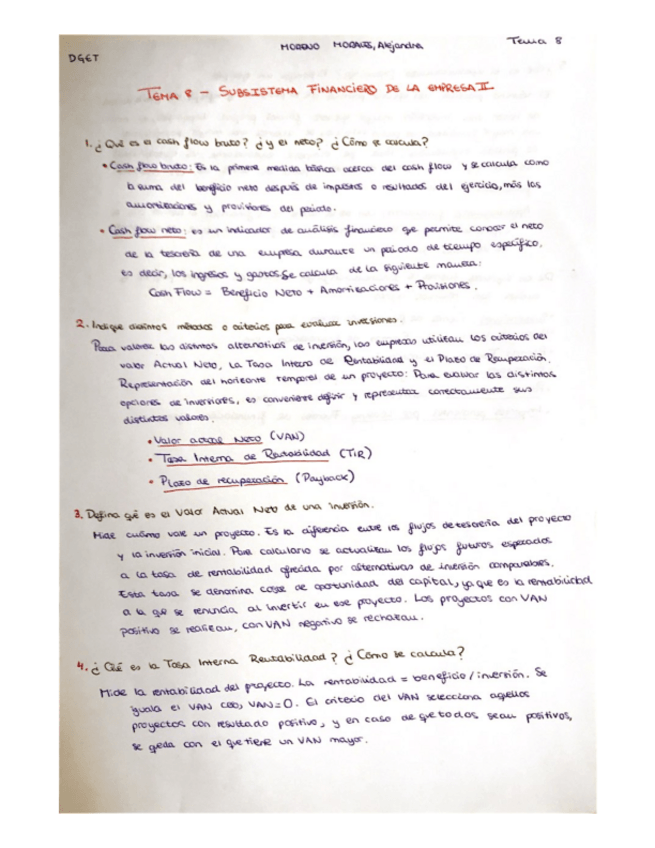 MORENO MORALES, Alejandra
Tema 8
DGET
TEMA 8 - SUBSISTEMA FINANCIERO DE LA EMPRESA II
1. ¿Qué es el cash flow bruto? ¿y el neto? ¿Cómo se calcula?
• Cash flow bruto: Es la primera medida básica acerca del cash flow y se calcula como
la suma del beneficio neto después de impuestos o resultados del ejercicio, más las
amortizaciones y provisiones del periodo.
• Cash flow neto: es un indicador de análisis financiero que permite conocer el neto
de la tesorería de una empresa durante un periodo de tiempo específico,
es decir, los ingresos y gastos. Se calcula de la siguiente manera:
Cash Flow = Beneficio Neto + Amortizaciones + Provisiones.
2. Indique distintos métodos o criterios para evaluar inversiones.
Para valorar las distintas alternativas de inversión, las empresas utilizan los criterios del
valor Actual Neto, La Tasa Interna de Rentabilidad y el Plazo de Recuperación.
Representación del horizonte temporal de un proyecto: Para evaluar las distintas
opciones de inversiones, es conveniente definir y representar correctamente sus
distintos valores.
• Valor actual Neto (VAN)
• Tasa Interna de Rentabilidad (TIR)
• Plazo de recuperación (Payback)
3. Defina qué es el Valor Actual Neto de una inversión.
Mide cuánto vale un proyecto. Es la diferencia entre los flujos de tesorería del proyecto
y la inversión inicial. Para calcularlo se actualizan los flujos futuros esperados
a la tasa de rentabilidad ofrecida por alternativas de inversión comparables.
Esta tasa se denomina coste de oportunidad del capital, ya que es la rentabilidad
a la que se renuncia al invertir en ese proyecto. Los proyectos con VAN
positivo se realizan, con VAN negativo se rechazan.
4. ¿Qué es la Tasa Interna Rentabilidad? ¿Cómo se calcula?
Mide la rentabilidad del proyecto. La rentabilidad = beneficio / inversión. Se
iguala el VAN cero, VAN=0. El criterio del VAN selecciona aquellos
proyectos con resultado positivo, y en caso de que todos sean positivos,
se queda con el que tiene un VAN mayor.